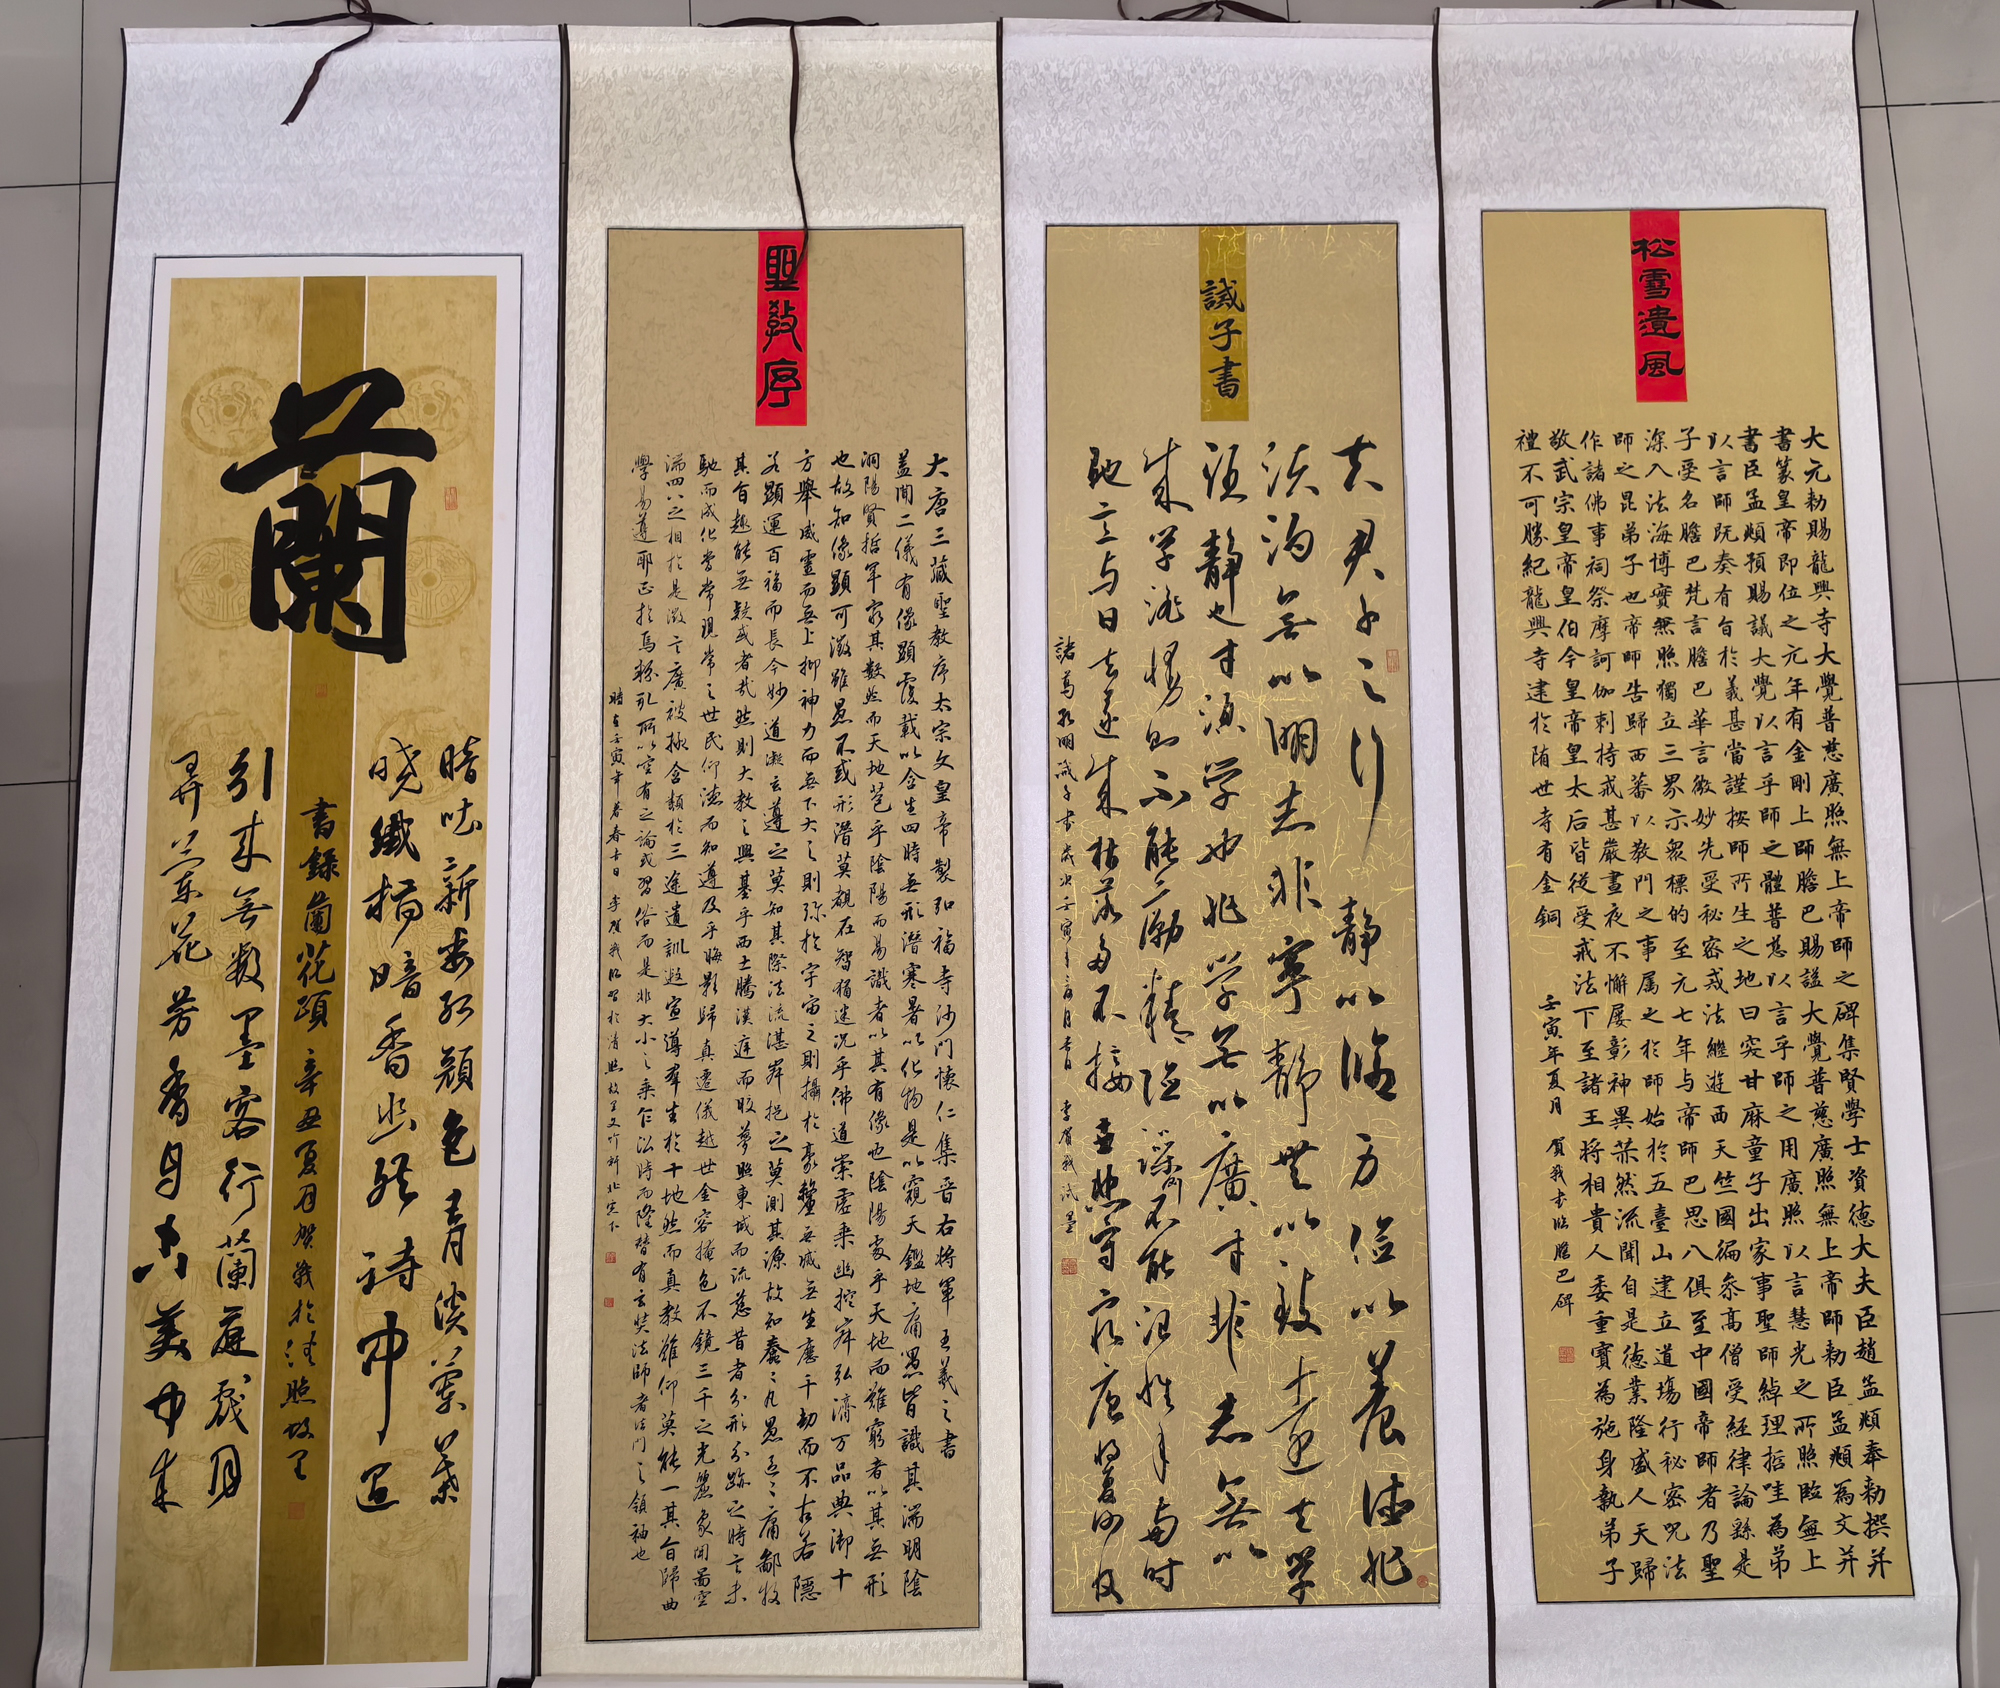 松雪遺風
大元勅賜龍興寺大覺普慈廣照無上帝師之碑集賢學士資德大夫臣趙孟頫奉勅撰并
書篆皇帝即位之元年有金剛上師膽巴賜謚大覺普慈廣照無上帝師勅臣孟頫為文并
書臣孟頫預賜議大覺以言乎師之體普慈以言乎師之用廣照以言慧光之所照臨無上
以言師既奏有旨於義甚當謹按師所生之地曰突甘麻童子出家事聖師綽理哲哇為弟
子受名膽巴梵言膽巴華言微妙先受秘密戒法繼遊西天竺國徧叅高僧受經律論繇是
深入法海博實無照獨立三界示衆標的至元七年与帝師巴思八俱至中國帝師者乃聖
師之昆弟子也帝師告歸西蕃以教門之事属之於師始於五臺山建立道場行秘密呪法
作諸佛事祠祭摩訶伽剌持戒甚嚴晝夜不懈屢彰神異荣然流聞自是德業隆盛人天歸
敬武宗皇帝皇伯今皇帝皇太后皆從受戒法下至諸王將相貴人委重寶為施身執弟子
禮不可勝紀龍興寺建於隋世寺有金銅
壬寅年夏月 賀我書臨膽巴碑
誡子書
夫君子之行靜以脩身儉以養德非
淡泊無以明志非寧靜無以致遠夫學
須靜也才須學也非學無以廣才非志無以
成學淫慢則不能勵精險躁不能治性年与時
馳意与日去遂成枯落多不接世悲守窮廬將復何及
諸葛孔明誡子書 歲次壬寅年 李賀我試墨
聖教序
大唐三藏聖教序太宗文皇帝製弘福寺沙門懷仁集晉右將軍王羲之書
蓋聞二儀有像顯覆載以含生四時無形潛寒暑以化物是以窺天鑑地庸愚皆識其端明陰
洞陽賢哲罕窮其數然而天地苞乎陰陽而易識者以其有像也陰陽處乎天地而難窮者以其無形
也故知像顯可徵雖愚不惑形潛莫覩在智猶迷況乎佛道崇虛乘幽控寂弘濟万品典御十
方舉威靈而無上抑神力而無下大之則彌於宇宙之則攝於豪釐無滅無生歷千劫而不古若隱
若顯運百福而長今妙道凝玄遵之莫知其際法流湛寂挹之莫測其源故知蠢〻凡愚區〻庸鄙投
其旨趣能無疑或者哉然則大教之興基乎西土騰漢庭而皎夢照東域而流慈昔者分形分跡之時言未
馳而成化當常現常之世民仰德而知遵及乎晦影歸真遷儀越世金容掩色不鏡三千之光麗象開圖空
端四八之相於是微言廣被拯含類於三途遺訓遐宣導群生於十地然而真教難仰莫能一其旨歸曲
學易遵耶正於焉紛糺所以空有之論或習俗而是非大小之乘乍沿時而隆替有玄奘法師者法門之領袖也
時在壬寅年暮春吉日 李賀我臨習於清照故里
蘭
暗吐新姿顏色青淡蘭葉
曉纖指暗香幽詩中
書錄蘭花頌 辛丑夏月賀我於清照故里
引來無數墨客行蘭庭歲月
弄蘭花芳香自古美中來